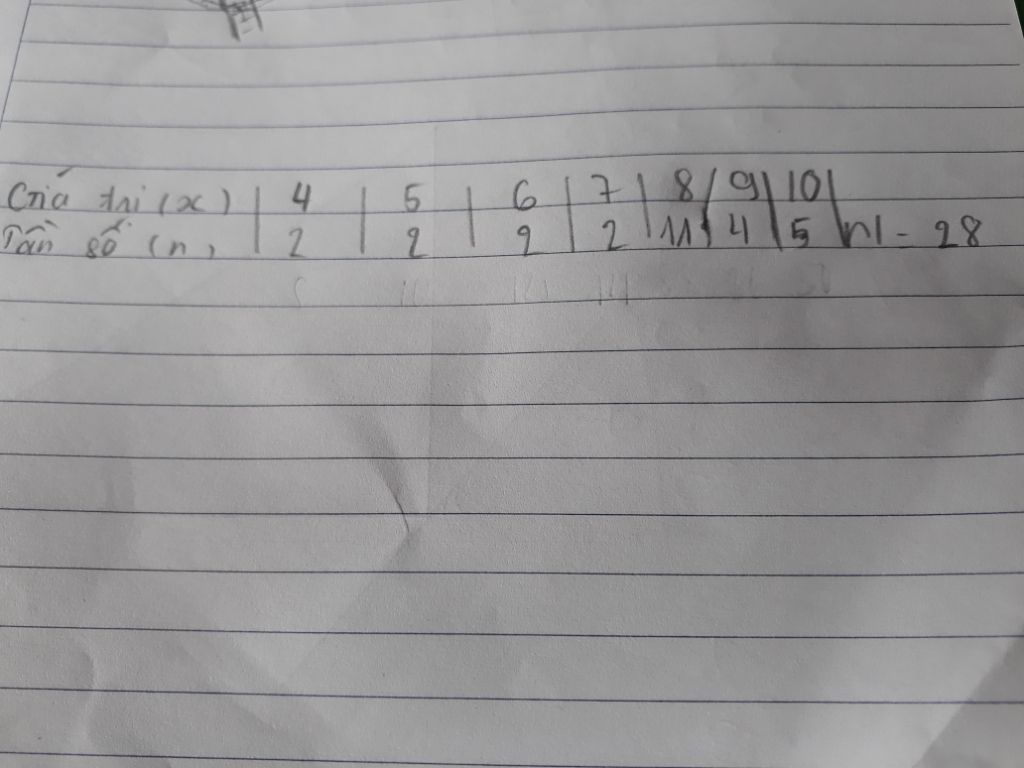 Giá trị (x) | 4 | 5 | 6 | 7 | 8 | 9 | 10 |
Tần số (n) | 2 | 2 | 2 | 2 | 11 | 4 | 5 | N = 28